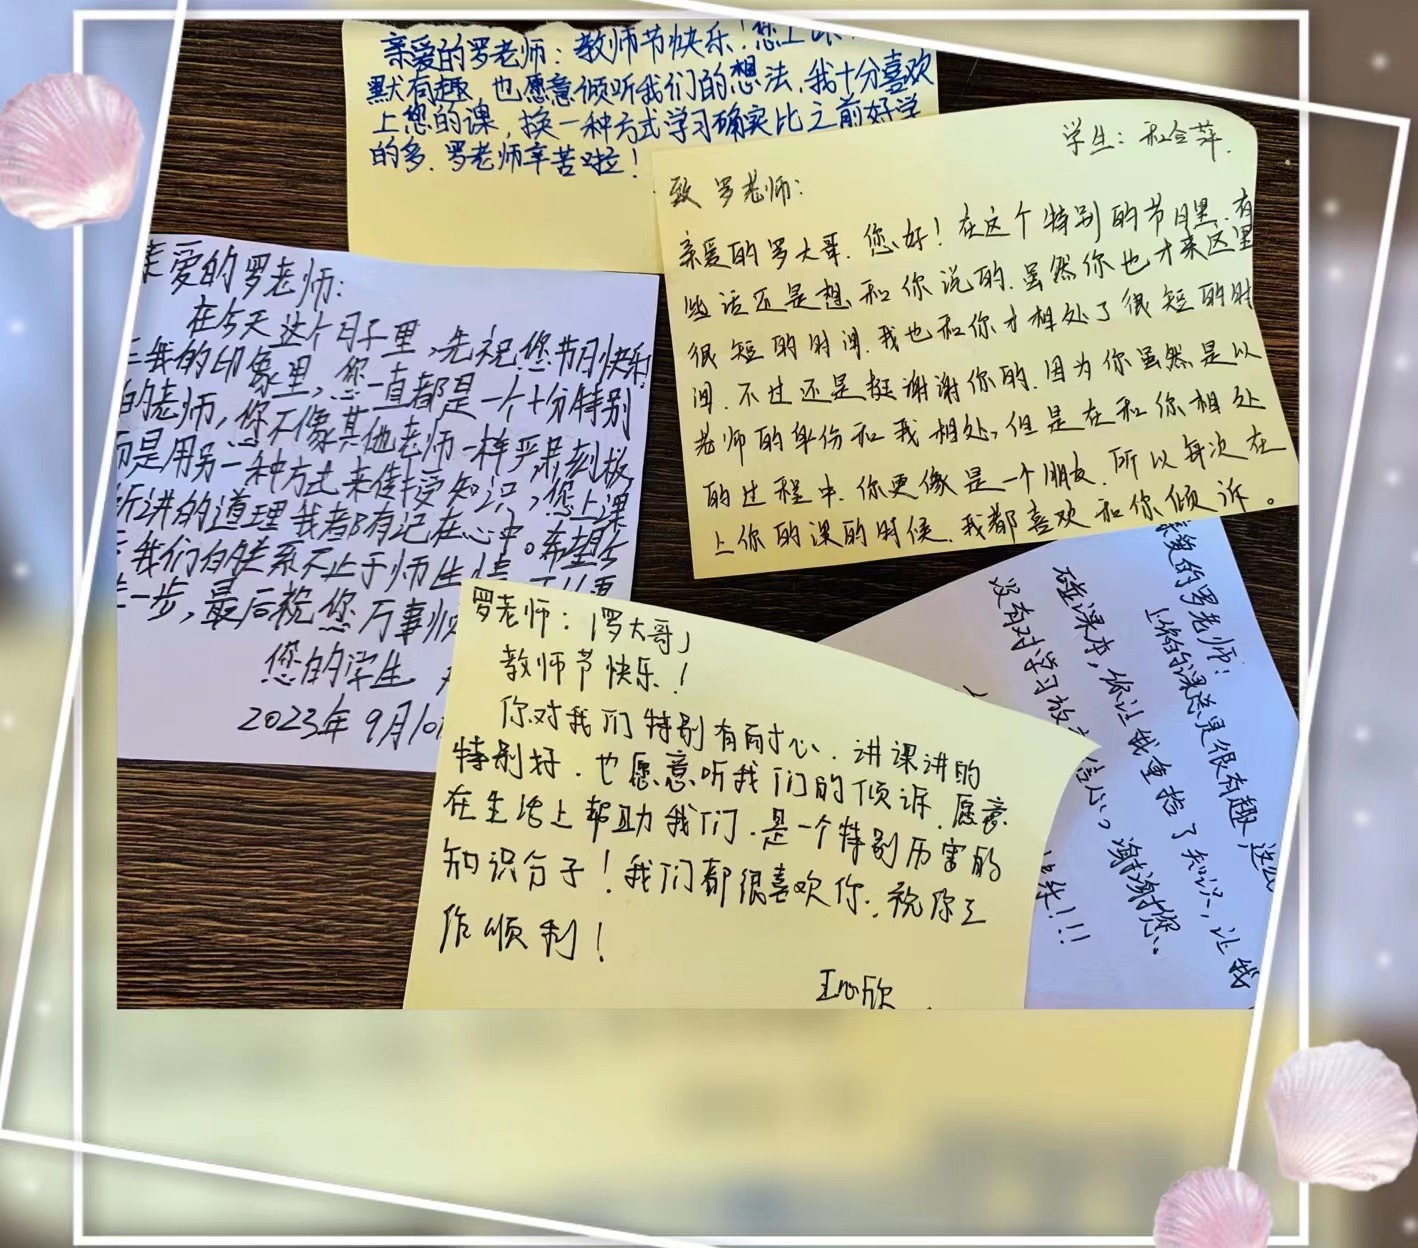 亲爱的罗老师：教师节快乐！您上课
默有趣，也愿意倾听我们的想法，我十分喜欢
上您的课，换一种方式学习确实比之前好学
的多，罗老师辛苦啦！
学生：和合萍
致罗老师：
亲爱的罗大哥，您好！在这个特别的节日里，有
些话还是想和你说的，虽然你也才来这里
很短的时间，我也和你才相处了很短的时
间，不过还是挺谢谢你的，因为你虽然是以
老师的身份和我相处，但是在和你相处
的过程中，你更像是一个朋友，所以每次在
上你的课的时候，我都喜欢和你倾诉。
亲爱的罗老师：
在今天这个日子里，先祝您节日快乐
在我的印象里，您一直都是一个十分特别
的老师，您不像其他老师一样严肃刻板
而是用另一种方式来传受知识，您上课
所讲的道理我都有记在心中。希望今
后我们的关系不止于师生情，可以更
进一步，最后祝您万事顺
您的学生
2023年9月10
罗老师：「罗大哥」
教师节快乐！
你对我们特别有耐心，讲课讲的
特别好，也愿意听我们的倾诉，愿意
在生活上帮助我们，是一个特别厉害的
知识分子！我们都很喜欢你，祝你工
作顺利！
王心欣
亲爱的罗老师：
上你的课总是很有趣，这
碰课本，你让我重拾了知识，让我
没有对学习放 信心，谢谢您。
乐！！！